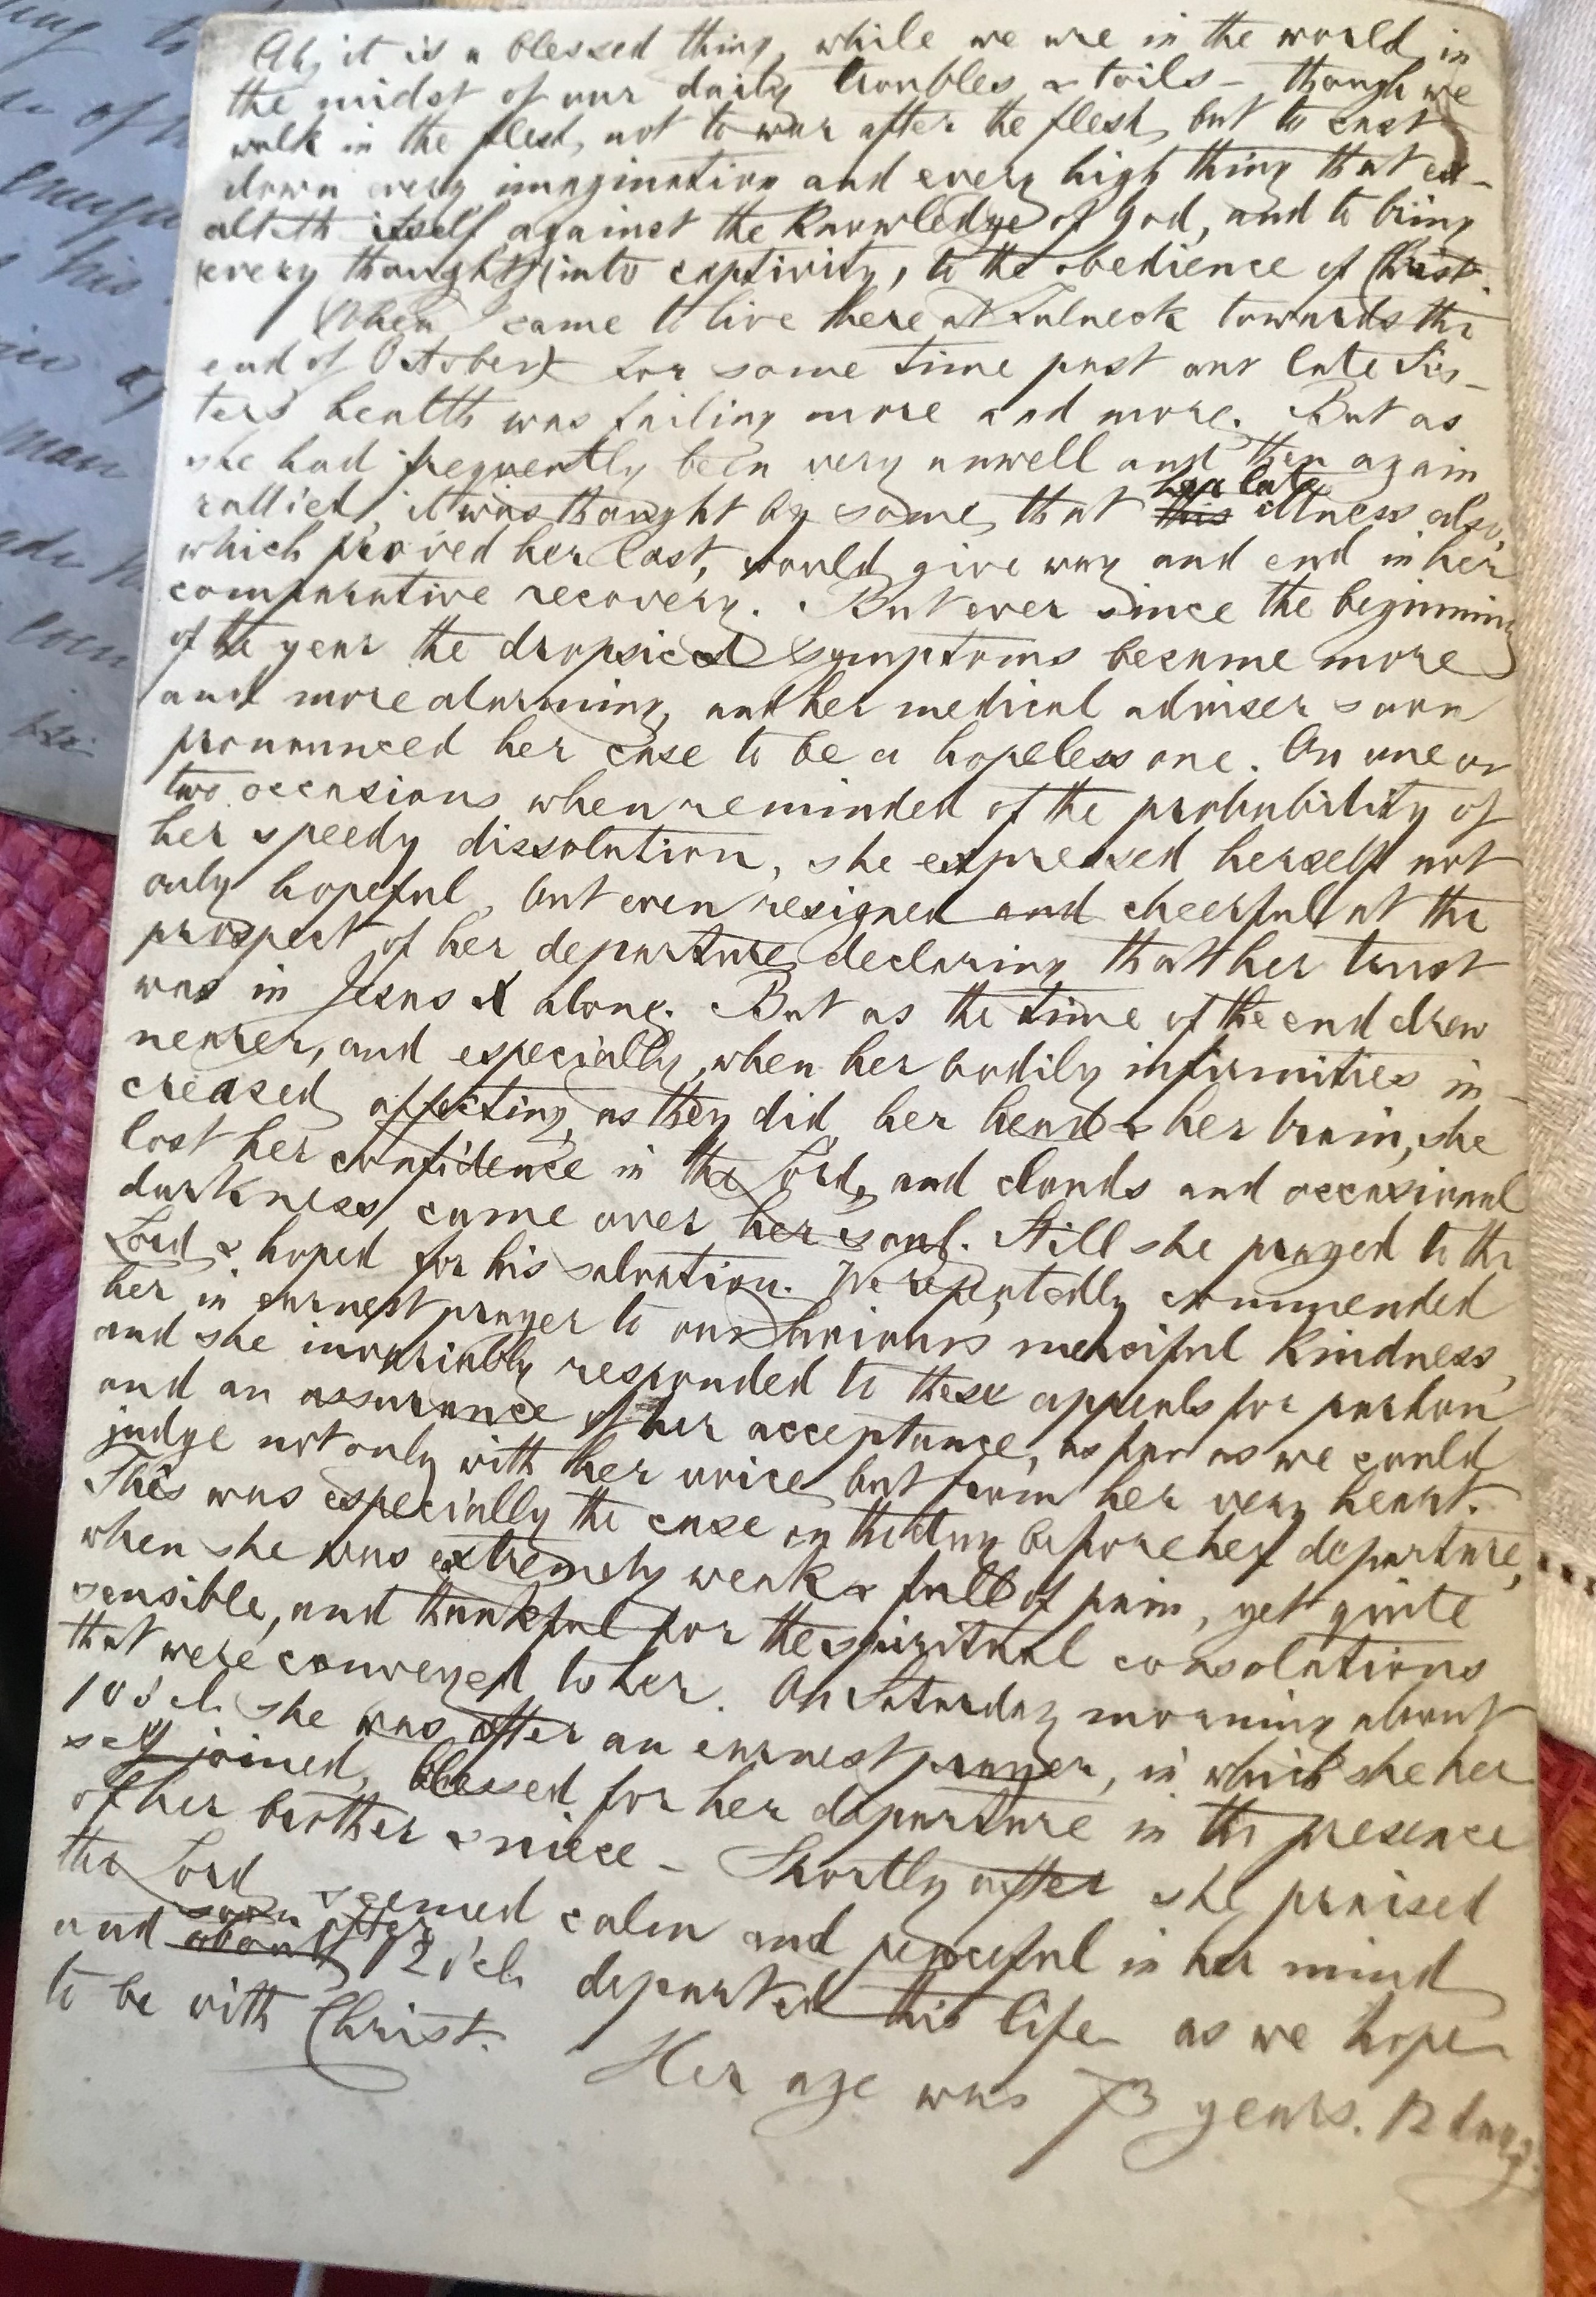 Ah, it is a blessed thing, while we are in the world in
the midst of our daily troubles & toils – though we
walk in the flesh, not to war after the flesh, but to cast
down every imagination and every high thing that ex-
alteth itself against the knowledge of God, and to bring
every thought into captivity, to the obedience of Christ.
(When came to live here at Fulneck towards the
end of October) For some time past our late Sis-
ters health was failing more and more. But as
she had frequently been very unwell and then again
her late
rallied, it was thought by some, that this illness also,
which proved her last, would give way and end in her
comparative recovery. But ever since the beginning
of the year the dropsical symptoms became more
and more alarming, and her medical adviser soon
pronounced her case to be a hopeless one. On one or
two occasions when reminded of the probability of
her speedy dissolution, she expressed herself not
only hopeful, but even resigned and cheerful at the
prospect of her departure, declaring that her trust
was in Jesus alone. But as the time of the end drew
nearer, and especially, when her bodily infirmities in-
creased, affecting, as they did her head & her brain, she
lost her confidence in the Lord, and clouds and occasional
darkness came over her soul. Still she prayed to the
Lord & hoped for his salvation. We repeatedly commended
her in earnest prayer to our Saviours merciful kindness,
and she invariably responded to these appeals for pardon
and an assurance of her acceptance, as far as we could
judge not only with her voice but from her very heart.
This was especially the case on the day before her departure,
when she was extremely weak & full of pain, yet quite
sensible, and thankful for the spiritual consolations
that were conveyed to her. On Saturday morning about
10 o'cl. she was after an earnest prayer, in which she her
self joined, blessed for her departure in the presence
of her brother & niece – Shortly after she praised
the Lord seemed calm and peaceful in her mind
soon after
and about 12 o'cl. departed this life as we hope
to be with Christ.
Her age was 73 years. 12 days.